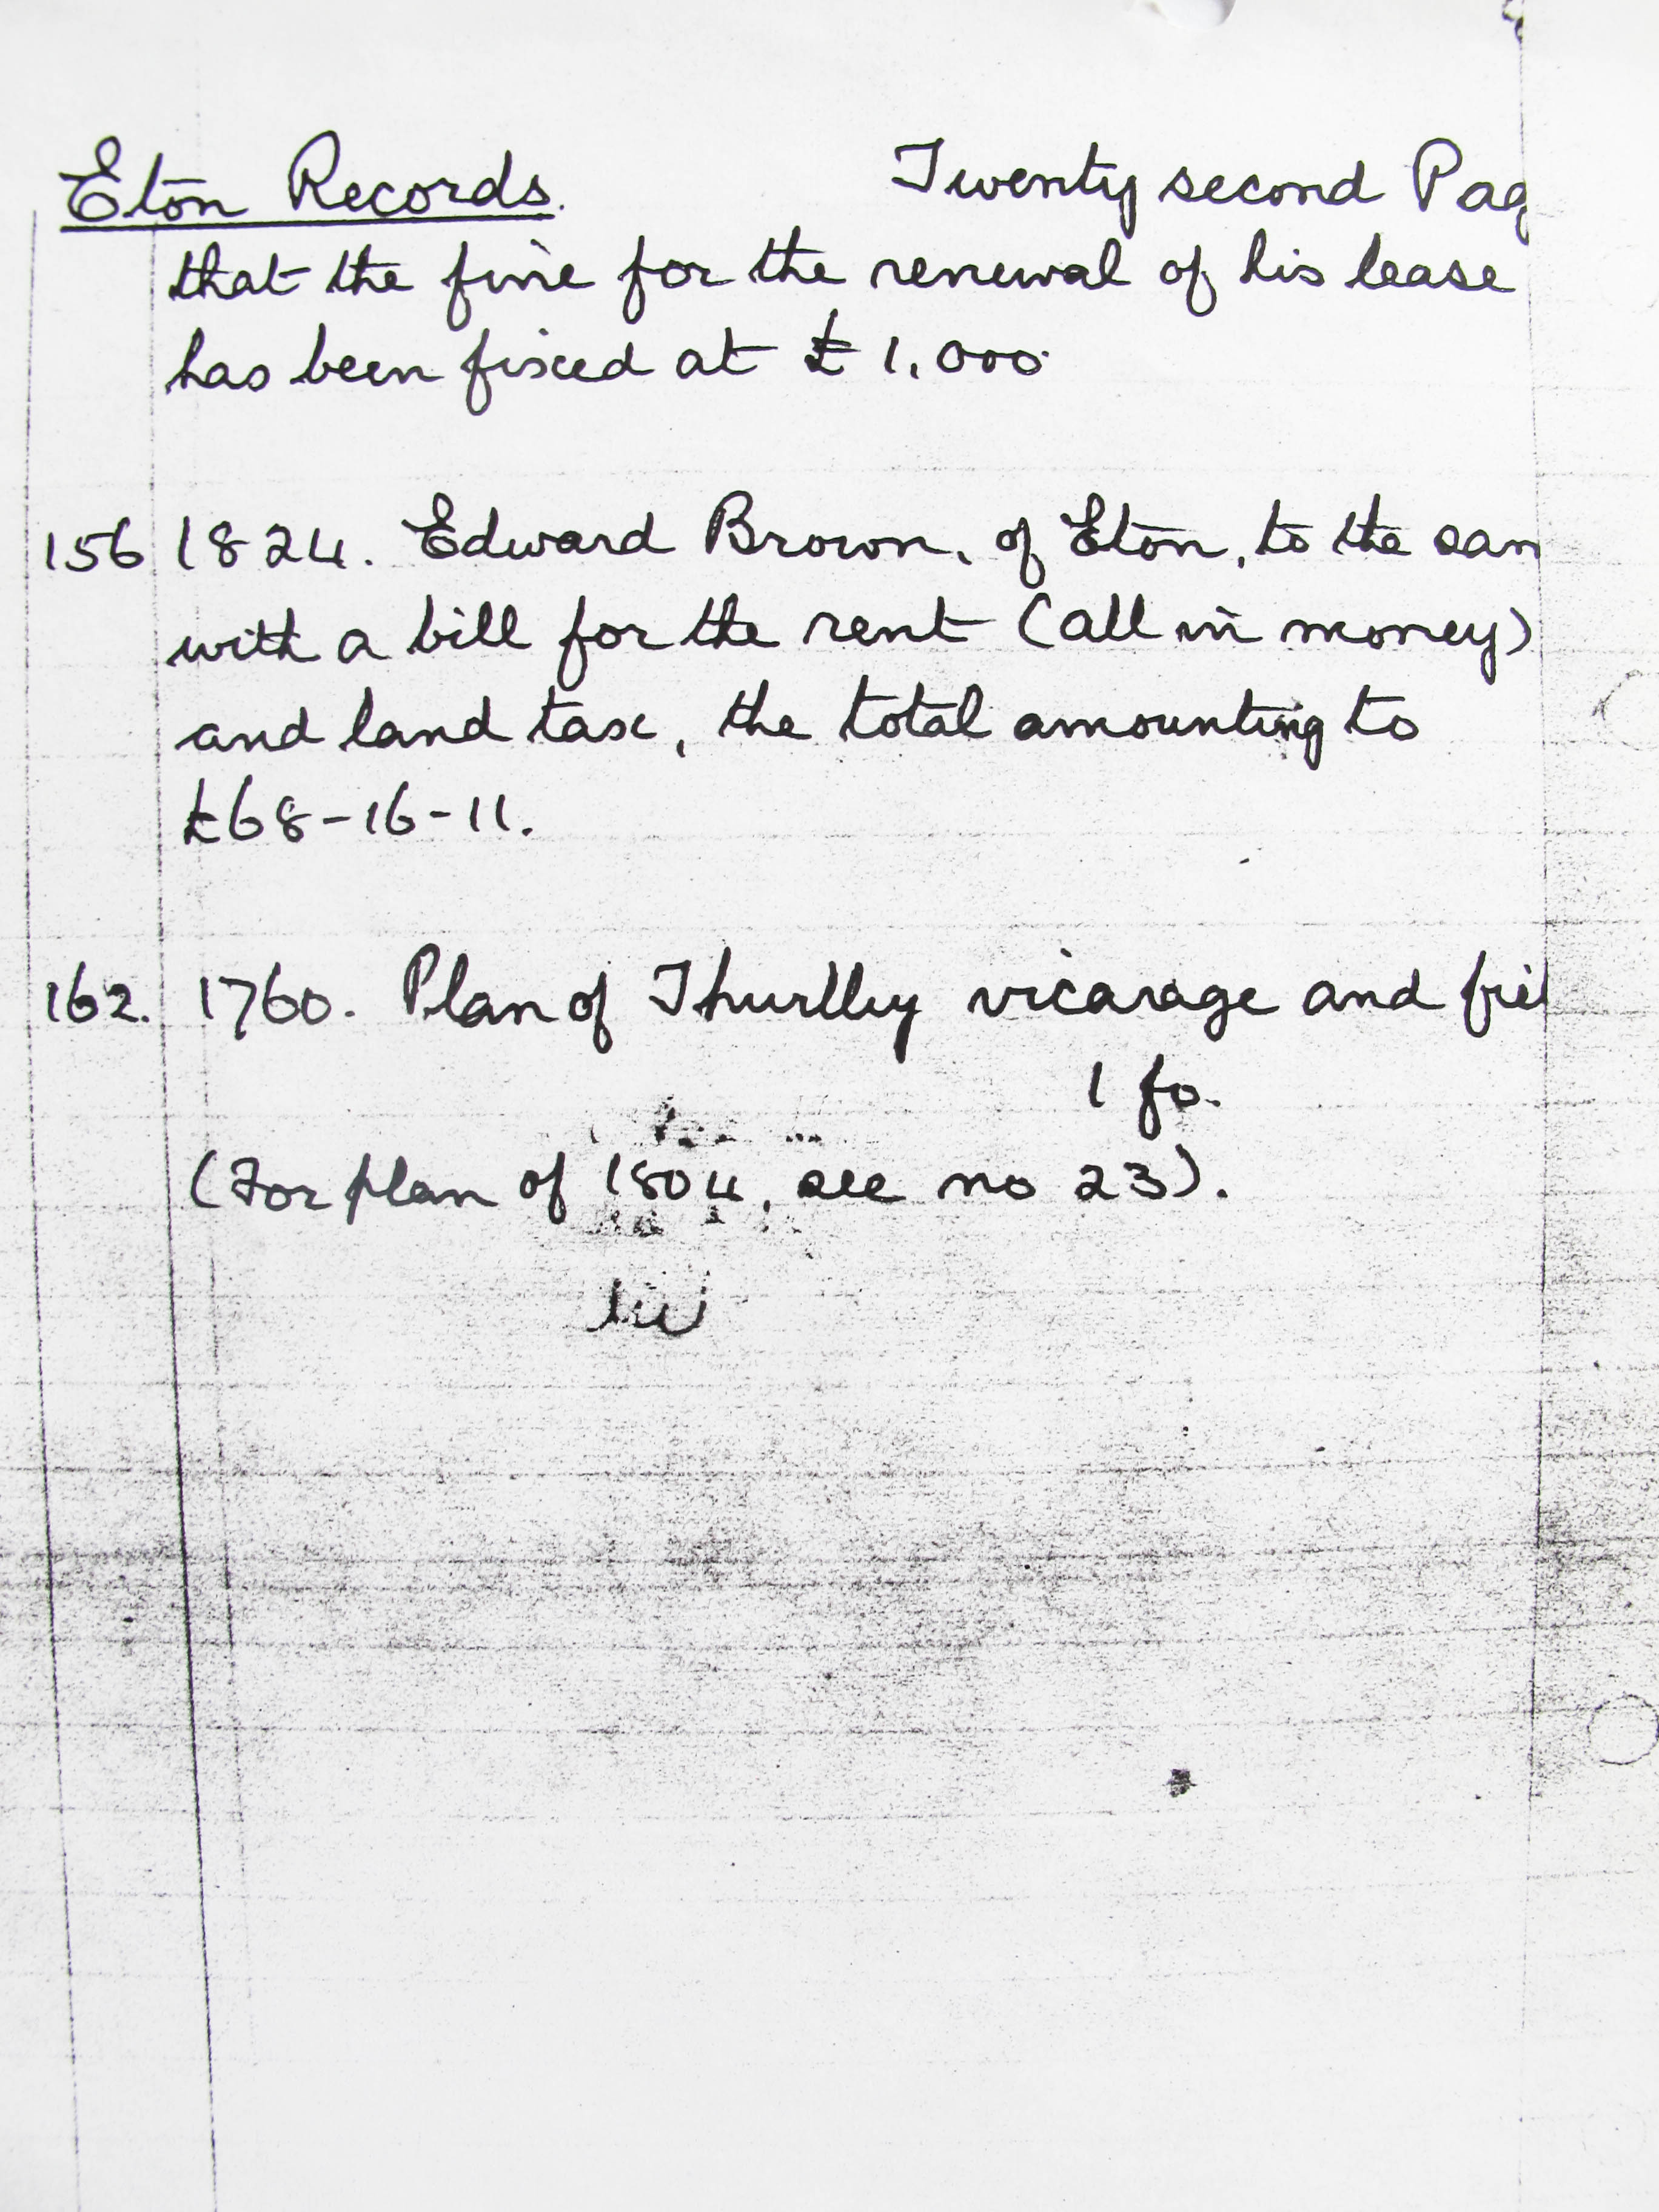 Eton Records. Twenty second Pag
that the fine for the renewal of his lease
has been fixed at £1,000.
156 1824. Edward Brown, of Eton, to the sam
with a bill for the rent (all in money)
and land tax, the total amounting to
£68-16-11.
162. 1760. Plan of Thurlby vicarage and fiel
1 fo.
(For plan of 1804, see no 23).